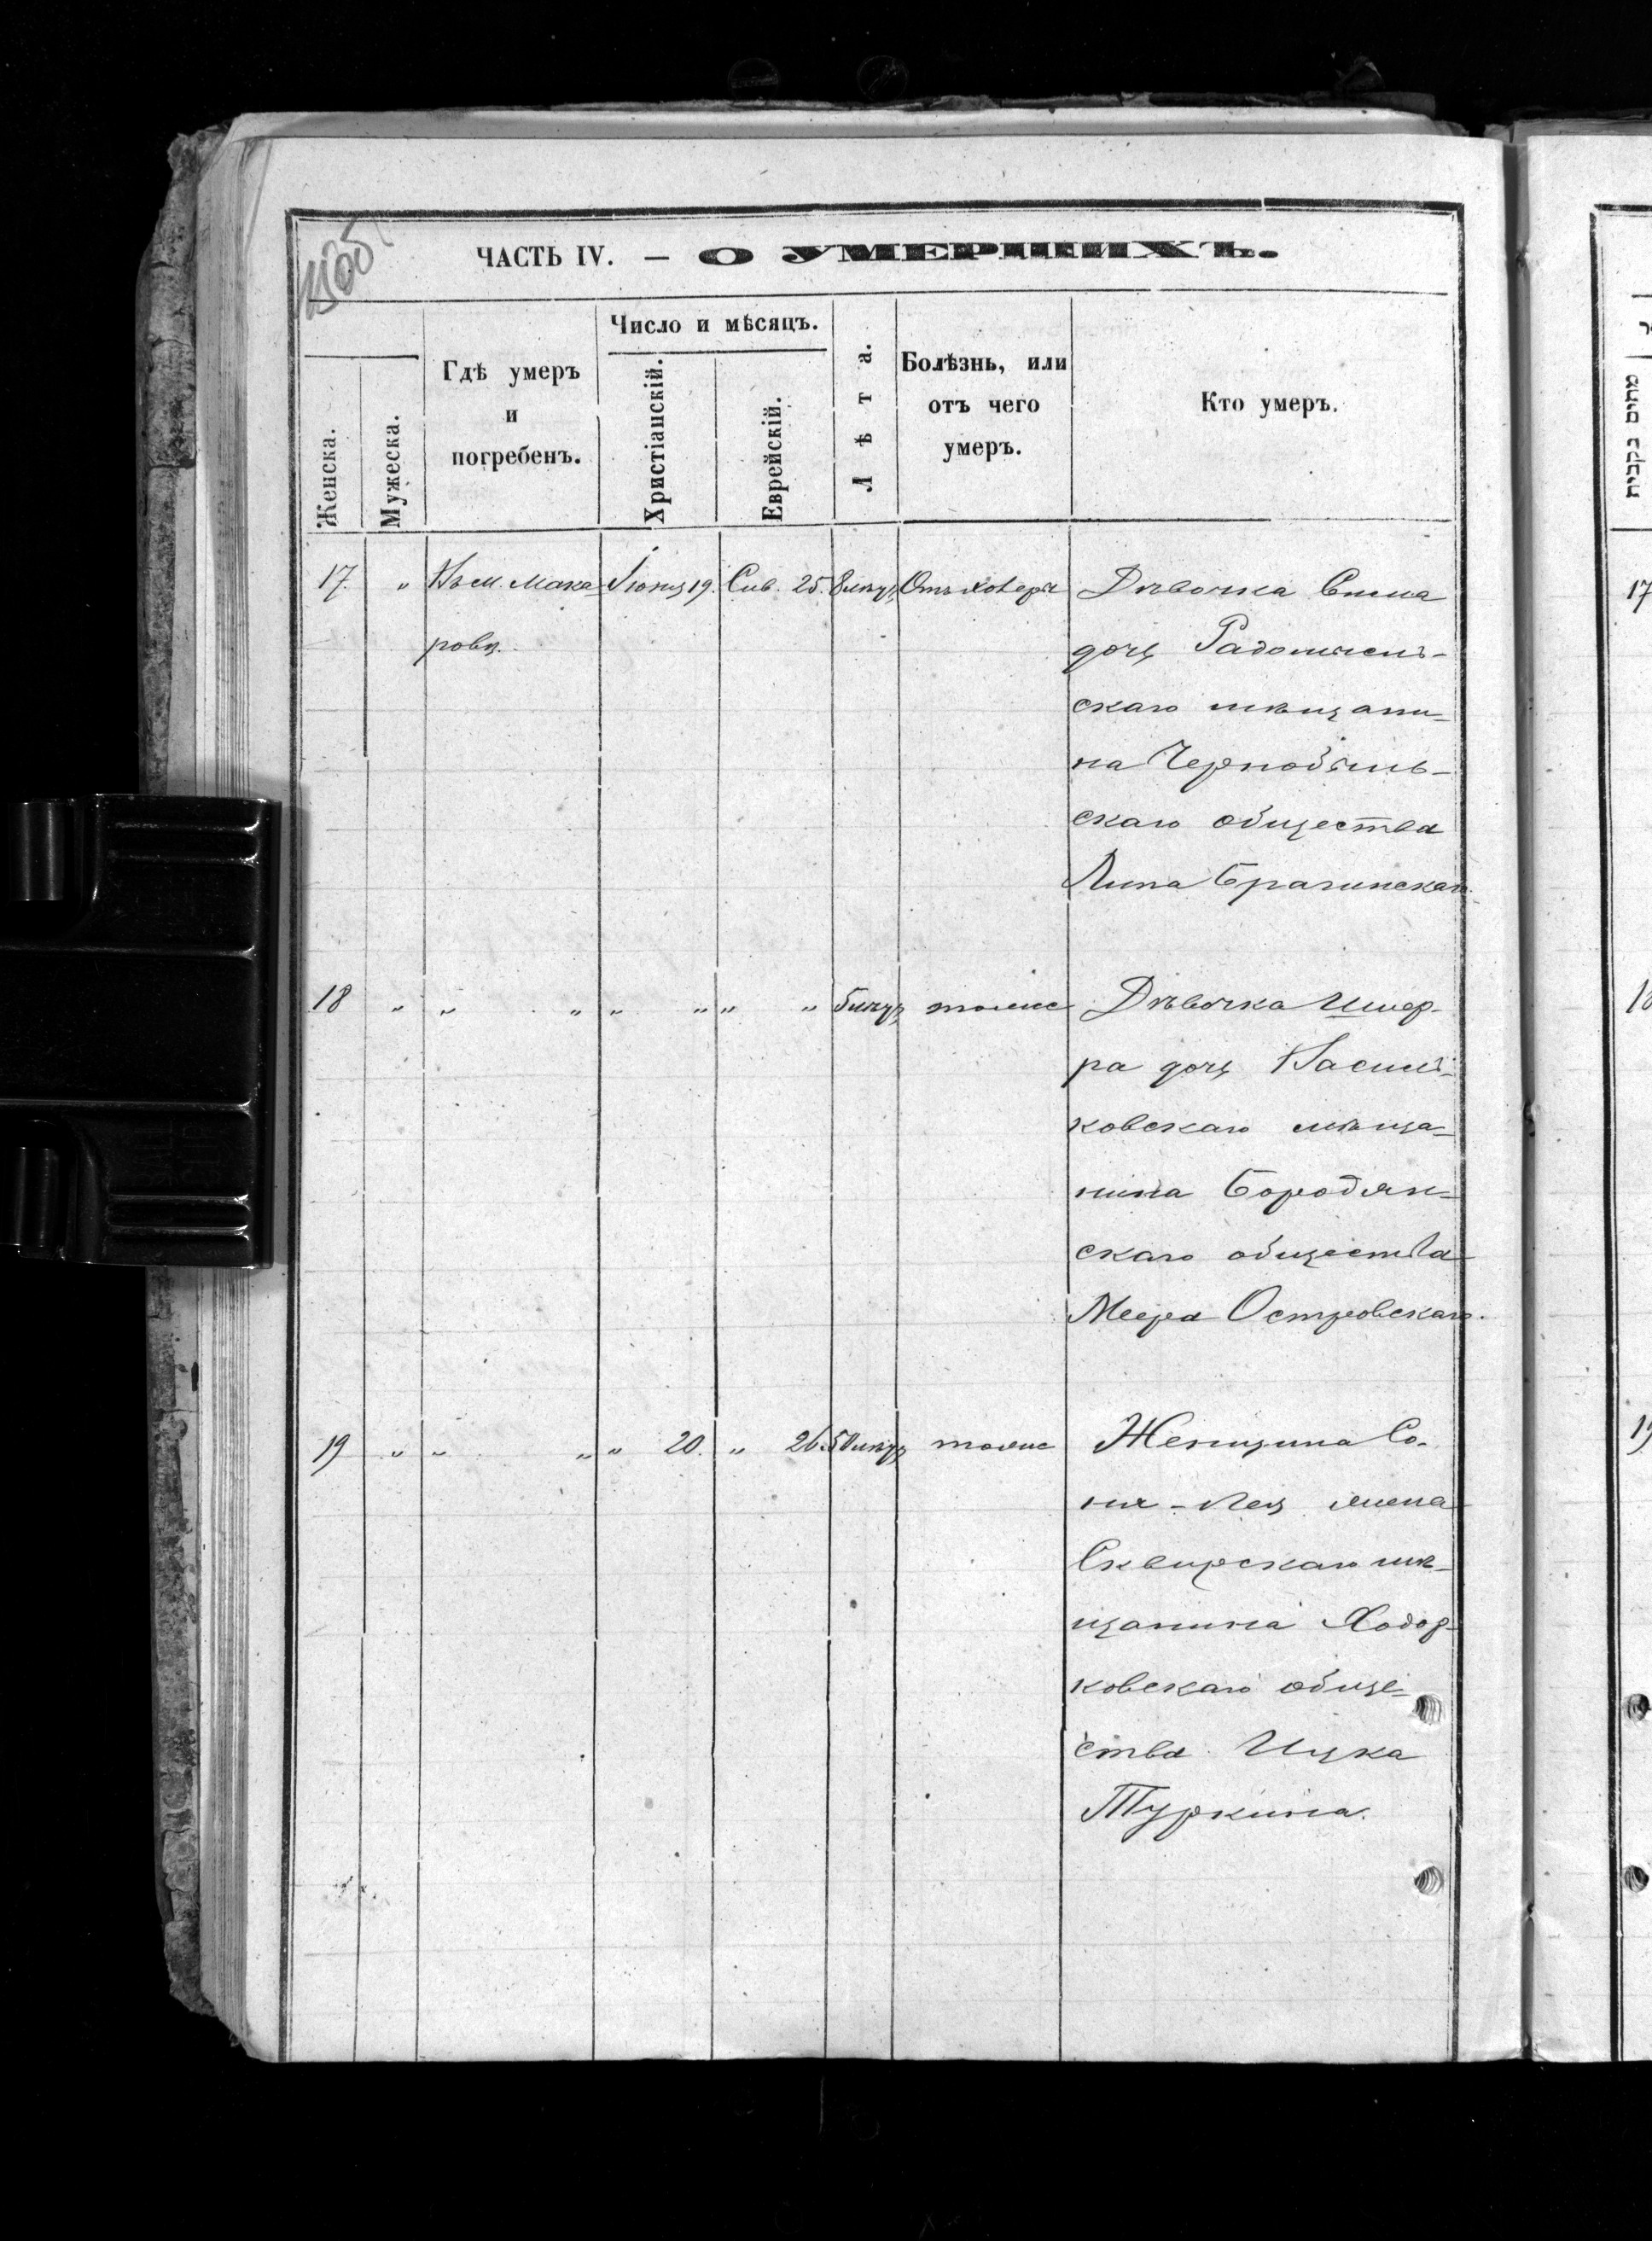 ЧАСТЬ IV. — О УМЕРШИХЪ.
Женска.
Мужеска.
Гдѣ умеръ
и
погребенъ.
Число и мѣсяцъ.
Христіанскій.
Еврейскій.
Лѣта.
Болѣзнь, или
отъ чего
умеръ.
Кто умеръ.
17. „ Въ м. Мака- Іюня 19. Сив. 25. Отъ холеры Дѣвочка Сима
ровѣ. дочь Радомысль-
скаго мѣщани-
на Чернобыль-
скаго общества
Липа Брагинскаго.
18 „ „ „ „ „ „ „ тоже Дѣвочка Шпер-
ра дочь Василь-
ковскаго мѣща-
нина Бородян-
скаго общества
Меера Островскаго.
19 „ „ „ „ 20. „ 26. 50 тоже Женщина Со-
ня-Лея жена
Сквирскаго мѣ-
щанина Ходор-
ковскаго обще-
ства Ицка
Туркина.
מתים נקבות
17
18
19